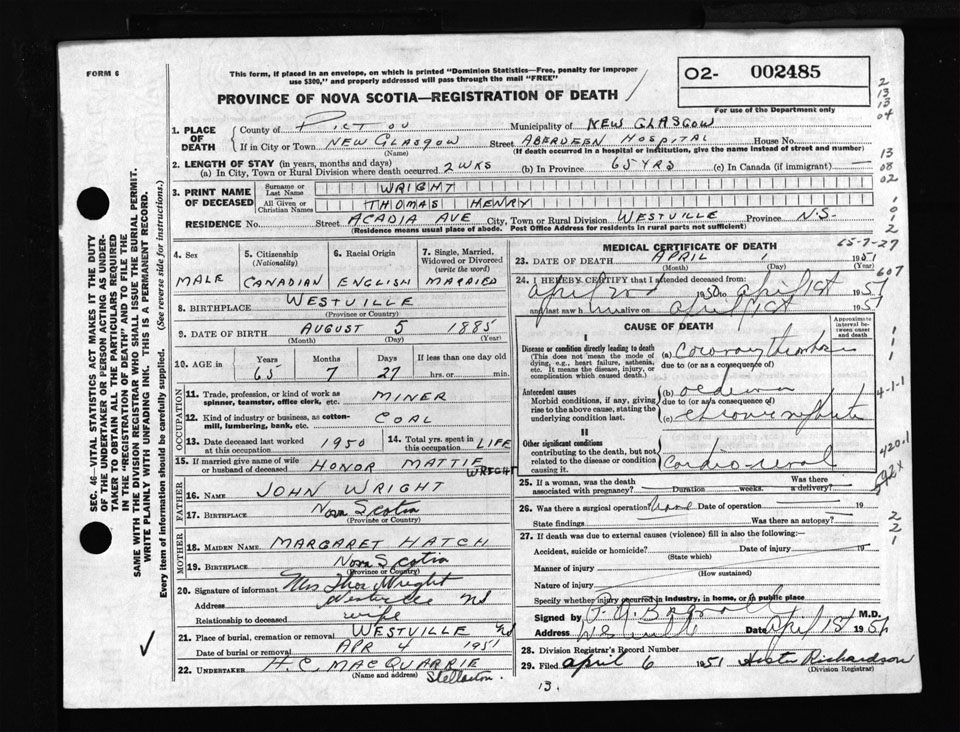 FORM 6
This form, if placed in an envelope, on which is printed "Dominion Statistics—Free, penalty for improper
use $300," and properly addressed will pass through the mail "FREE"
02- 002485
PROVINCE OF NOVA SCOTIA—REGISTRATION OF DEATH
For use of the Department only
1. PLACE OF DEATH County of PICTOU Municipality of NEW GLASGOW
If in City or Town NEW GLASGOW (Name) Street ABERDEEN HOSPITAL House No.
(If death occurred in a hospital or institution, give the name instead of street and number)
2. LENGTH OF STAY (in years, months and days)
(a) In City, Town or Rural Division where death occurred 2 WKS (b) In Province 65 YRS (c) In Canada (if immigrant) —
3. PRINT NAME OF DECEASED Surname or Last Name WRIGHT
All Given or Christian Names THOMAS HENRY
RESIDENCE No. Street ACADIA AVE City, Town or Rural Division WESTVILLE Province N.S.
(Residence means usual place of abode. Post Office Address for residents in rural parts not sufficient)
4. Sex MALE
5. Citizenship (Nationality) CANADIAN
6. Racial Origin ENGLISH
7. Single, Married, Widowed or Divorced (write the word) MARRIED
8. BIRTHPLACE WESTVILLE
(Province or Country)
9. DATE OF BIRTH AUGUST 5 1885
(Month) (Day) (Year)
10. AGE in Years 65 Months 7 Days 27 If less than one day old hrs. or min.
OCCUPATION
11. Trade, profession, or kind of work as spinner, teamster, office clerk, etc. MINER
12. Kind of industry or business, as cotton-mill, lumbering, bank, etc. COAL
13. Date deceased last worked at this occupation 1950 14. Total yrs. spent in this occupation LIFE
15. If married give name of wife or husband of deceased HONOR MATTIE WRIGHT
FATHER
16. Name JOHN WRIGHT
17. Birthplace Nova Scotia
(Province or Country)
MOTHER
18. Maiden Name MARGARET HATCH
19. Birthplace Nova Scotia
(Province or Country)
20. Signature of informant Mrs Thos Wright
Address Westville NS
Relationship to deceased wife
21. Place of burial, cremation or removal WESTVILLE NS
Date of burial or removal APR 4 1951
22. UNDERTAKER H.C. MACQUARRIE
(Name and address) Stellarton.
MEDICAL CERTIFICATE OF DEATH
65-7-27
23. DATE OF DEATH APRIL 1 1951
(Month) (Day) (Year)
24. I HEREBY CERTIFY that I attended deceased from:
April 1950 to April 1st 1951
and last saw him alive on April 1st 1951
CAUSE OF DEATH
Approximate interval between onset and death
I
Disease or condition directly leading to death (a) Coronary thrombosis
(This does not mean the mode of dying, e.g., heart failure, asthenia, etc. It means the disease, injury, or complication which caused death.)
due to (or as a consequence of)
Antecedent causes (b) oedema
Morbid conditions, if any, giving rise to above cause, stating the underlying condition last.
due to (or as a consequence of)
(c) chronic nephritis
II
Other significant conditions contributing to the death, but not related to the disease or condition causing it.
Cardio-renal
25. If a woman, was the death associated with pregnancy? Duration weeks. Was there a delivery?
26. Was there a surgical operation? None Date of operation 19
State findings Was there an autopsy?
27. If death was due to external causes (violence) fill in also the following:
Accident, suicide or homicide? Date of injury 19
(State which)
Manner of injury
(How sustained)
Nature of injury
Specify whether injury occurred in industry, in home, or in public place
Signed by M.D.
Address Westville Date April 1st 1951
28. Division Registrar's Record Number
29. Filed April 6 1951 Richardson
(Division Registrar)
13.
SEC. 46—VITAL STATISTICS ACT MAKES IT THE DUTY
OF THE UNDERTAKER OR PERSON ACTING AS UNDER-
TAKER TO OBTAIN ALL THE PARTICULARS REQUIRED
IN THE "REGISTRATION OF DEATH" AND TO FILE THE
SAME WITH THE DIVISION REGISTRAR WHO SHALL ISSUE THE BURIAL PERMIT.
WRITE PLAINLY WITH UNFADING INK. THIS IS A PERMANENT RECORD.
Every item of information should be carefully supplied. (See reverse side for instructions.)
2
13
13
04
13
08
02
1
0
1
2
607
1
1
1
4-1-1
420.1
592X
2
2
1